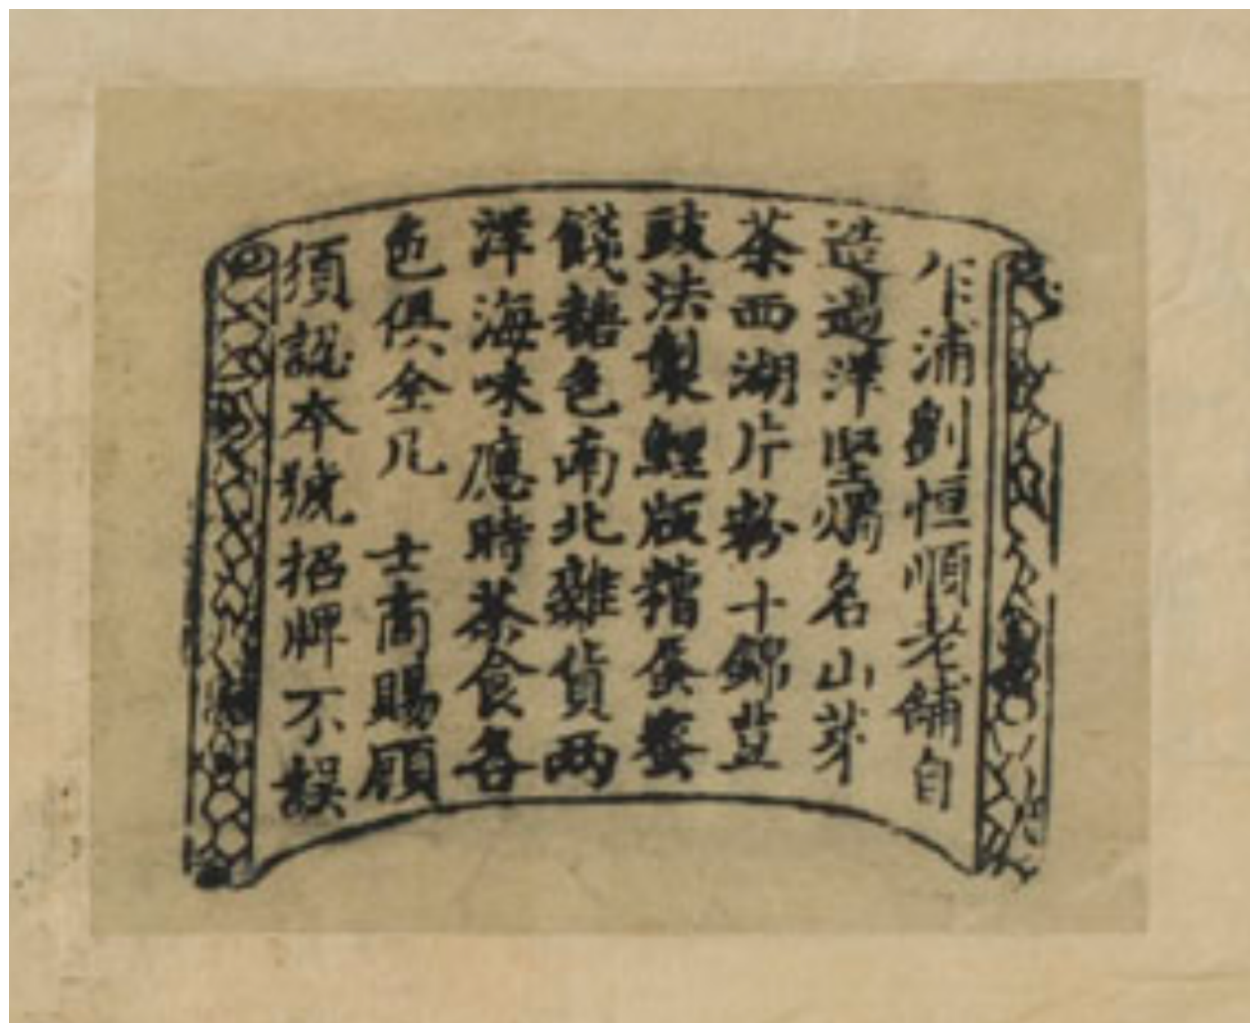 乍浦劉恒順老舖自
造過洋堅燭名山芽
茶西湖片粉十錦荳
豉法製鯉版糟蛋蜜
餞糖色南北雜貨两
洋海味應時茶食各
色俱全凡 士商賜顧
須認本號招牌不悞